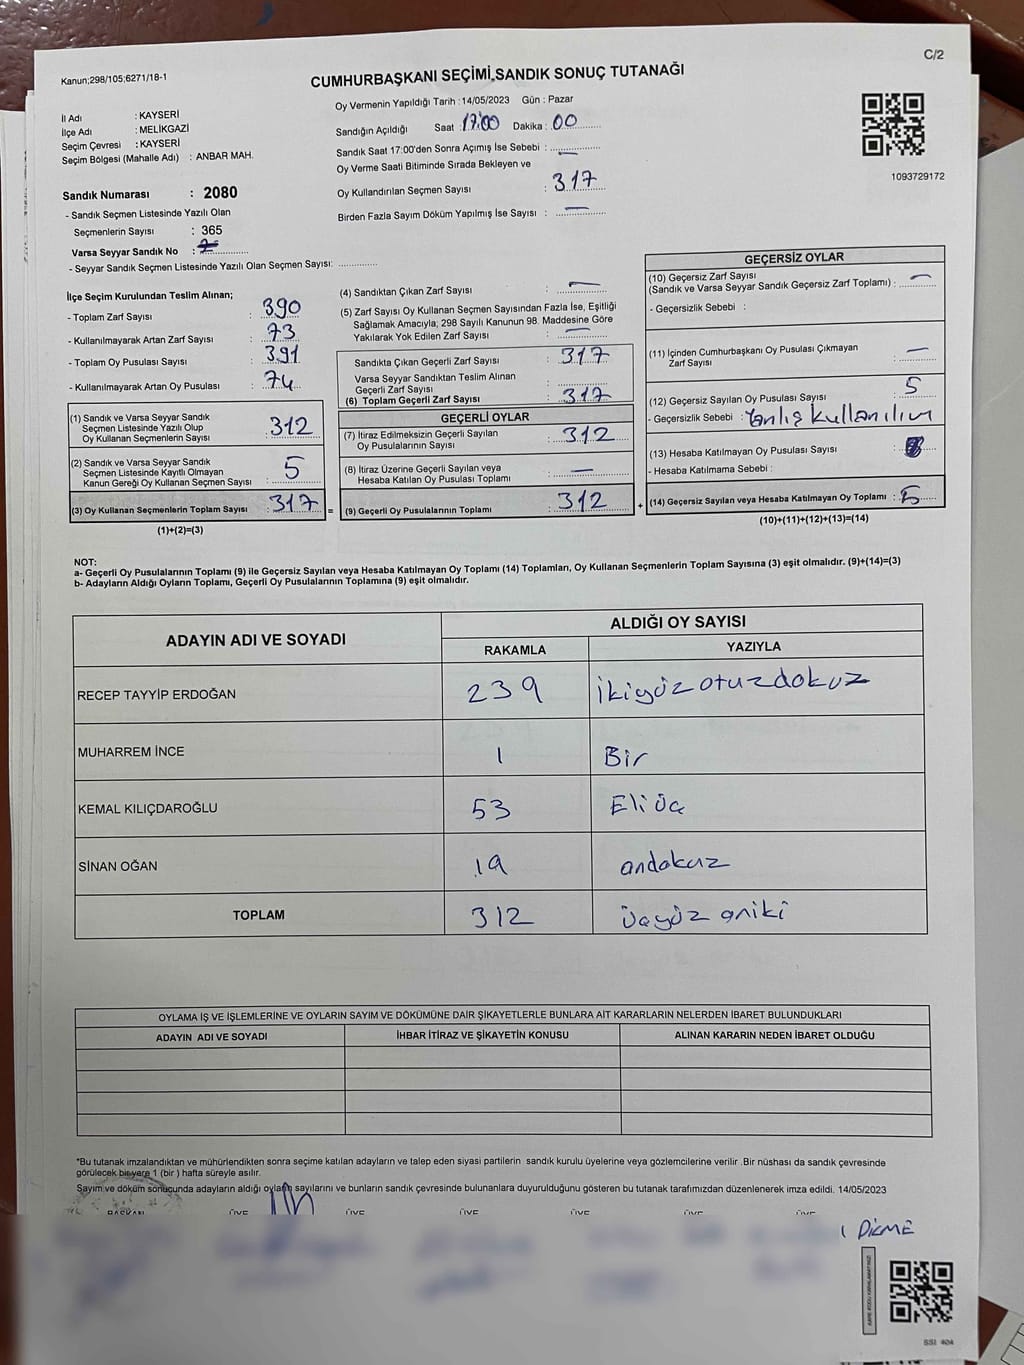 C/2
Kanun;298/105;6271/18-1
CUMHURBAŞKANI SEÇİMİ,SANDIK SONUÇ TUTANAĞI
İl Adı : KAYSERİ
İlçe Adı : MELİKGAZİ
Seçim Çevresi : KAYSERİ
Seçim Bölgesi (Mahalle Adı) : ANBAR MAH.
Oy Vermenin Yapıldığı Tarih : 14/05/2023 Gün : Pazar
Sandığın Açıldığı Saat : 17:00 Dakika : 00
Sandık Saat 17:00'den Sonra Açımış İse Sebebi : —
Oy Verme Saati Bitiminde Sırada Bekleyen ve
Oy Kullandırılan Seçmen Sayısı : 317
Birden Fazla Sayım Döküm Yapılmış İse Sayısı : —
1093729172
Sandık Numarası : 2080
- Sandık Seçmen Listesinde Yazılı Olan
Seçmenlerin Sayısı : 365
Varsa Seyyar Sandık No :
- Seyyar Sandık Seçmen Listesinde Yazılı Olan Seçmen Sayısı:
İlçe Seçim Kurulundan Teslim Alınan;
- Toplam Zarf Sayısı : 390
- Kullanılmayarak Artan Zarf Sayısı : 73
- Toplam Oy Pusulası Sayısı : 391
- Kullanılmayarak Artan Oy Pusulası : 74
(1) Sandık ve Varsa Seyyar Sandık
Seçmen Listesinde Yazılı Olup
Oy Kullanan Seçmenlerin Sayısı : 312
(2) Sandık ve Varsa Seyyar Sandık
Seçmen Listesinde Kayıtlı Olmayan
Kanun Gereği Oy Kullanan Seçmen Sayısı : 5
(3) Oy Kullanan Seçmenlerin Toplam Sayısı : 317 =
(1)+(2)=(3)
(4) Sandıktan Çıkan Zarf Sayısı : —
(5) Zarf Sayısı Oy Kullanan Seçmen Sayısından Fazla İse, Eşitliği
Sağlamak Amacıyla; 298 Sayılı Kanunun 98. Maddesine Göre
Yakılarak Yok Edilen Zarf Sayısı : —
Sandıkta Çıkan Geçerli Zarf Sayısı : 317
Varsa Seyyar Sandıktan Teslim Alınan
Geçerli Zarf Sayısı :
(6) Toplam Geçerli Zarf Sayısı : 317
GEÇERLİ OYLAR
(7) İtiraz Edilmeksizin Geçerli Sayılan
Oy Pusulalarının Sayısı : 312
(8) İtiraz Üzerine Geçerli Sayılan veya
Hesaba Katılan Oy Pusulası Toplamı : —
(9) Geçerli Oy Pusulalarının Toplamı : 312 +
GEÇERSİZ OYLAR
(10) Geçersiz Zarf Sayısı
(Sandık ve Varsa Seyyar Sandık Geçersiz Zarf Toplamı) : —
- Geçersizlik Sebebi :
(11) İçinden Cumhurbaşkanı Oy Pusulası Çıkmayan
Zarf Sayısı : —
(12) Geçersiz Sayılan Oy Pusulası Sayısı : 5
- Geçersizlik Sebebi : Yanlış kullanılım
(13) Hesaba Katılmayan Oy Pusulası Sayısı :
- Hesaba Katılmama Sebebi :
(14) Geçersiz Sayılan veya Hesaba Katılmayan Oy Toplamı : 5
(10)+(11)+(12)+(13)=(14)
NOT:
a- Geçerli Oy Pusulalarının Toplamı (9) ile Geçersiz Sayılan veya Hesaba Katılmayan Oy Toplamı (14) Toplamları, Oy Kullanan Seçmenlerin Toplam Sayısına (3) eşit olmalıdır. (9)+(14)=(3)
b- Adayların Aldığı Oyların Toplamı, Geçerli Oy Pusulalarının Toplamına (9) eşit olmalıdır.
ADAYIN ADI VE SOYADI ALDIĞI OY SAYISI
RAKAMLA YAZIYLA
RECEP TAYYİP ERDOĞAN 239 ikiyüzotuzdokuz
MUHARREM İNCE 1 Bir
KEMAL KILIÇDAROĞLU 53 Eliüç
SİNAN OĞAN 19 ondokuz
TOPLAM 312 üçyüz oniki
OYLAMA İŞ VE İŞLEMLERİNE VE OYLARIN SAYIM VE DÖKÜMÜNE DAİR ŞİKAYETLERLE BUNLARA AİT KARARLARIN NELERDEN İBARET BULUNDUKLARI
ADAYIN ADI VE SOYADI İHBAR İTİRAZ VE ŞİKAYETİN KONUSU ALINAN KARARIN NEDEN İBARET OLDUĞU
*Bu tutanak imzalandıktan ve mühürlendikten sonra seçime katılan adayların ve talep eden siyasi partilerin sandık kurulu üyelerine veya gözlemcilerine verilir .Bir nüshası da sandık çevresinde
görülecek bir yere 1 (bir ) hafta süreyle asılır.
Sayım ve döküm sonucunda adayların aldığı oyların sayılarını ve bunların sandık çevresinde bulunanlara duyurulduğunu gösteren bu tutanak tarafımızdan düzenlenerek imza edildi. 14/05/2023
BAŞKAN ÜYE ÜYE ÜYE ÜYE ÜYE ÜYE